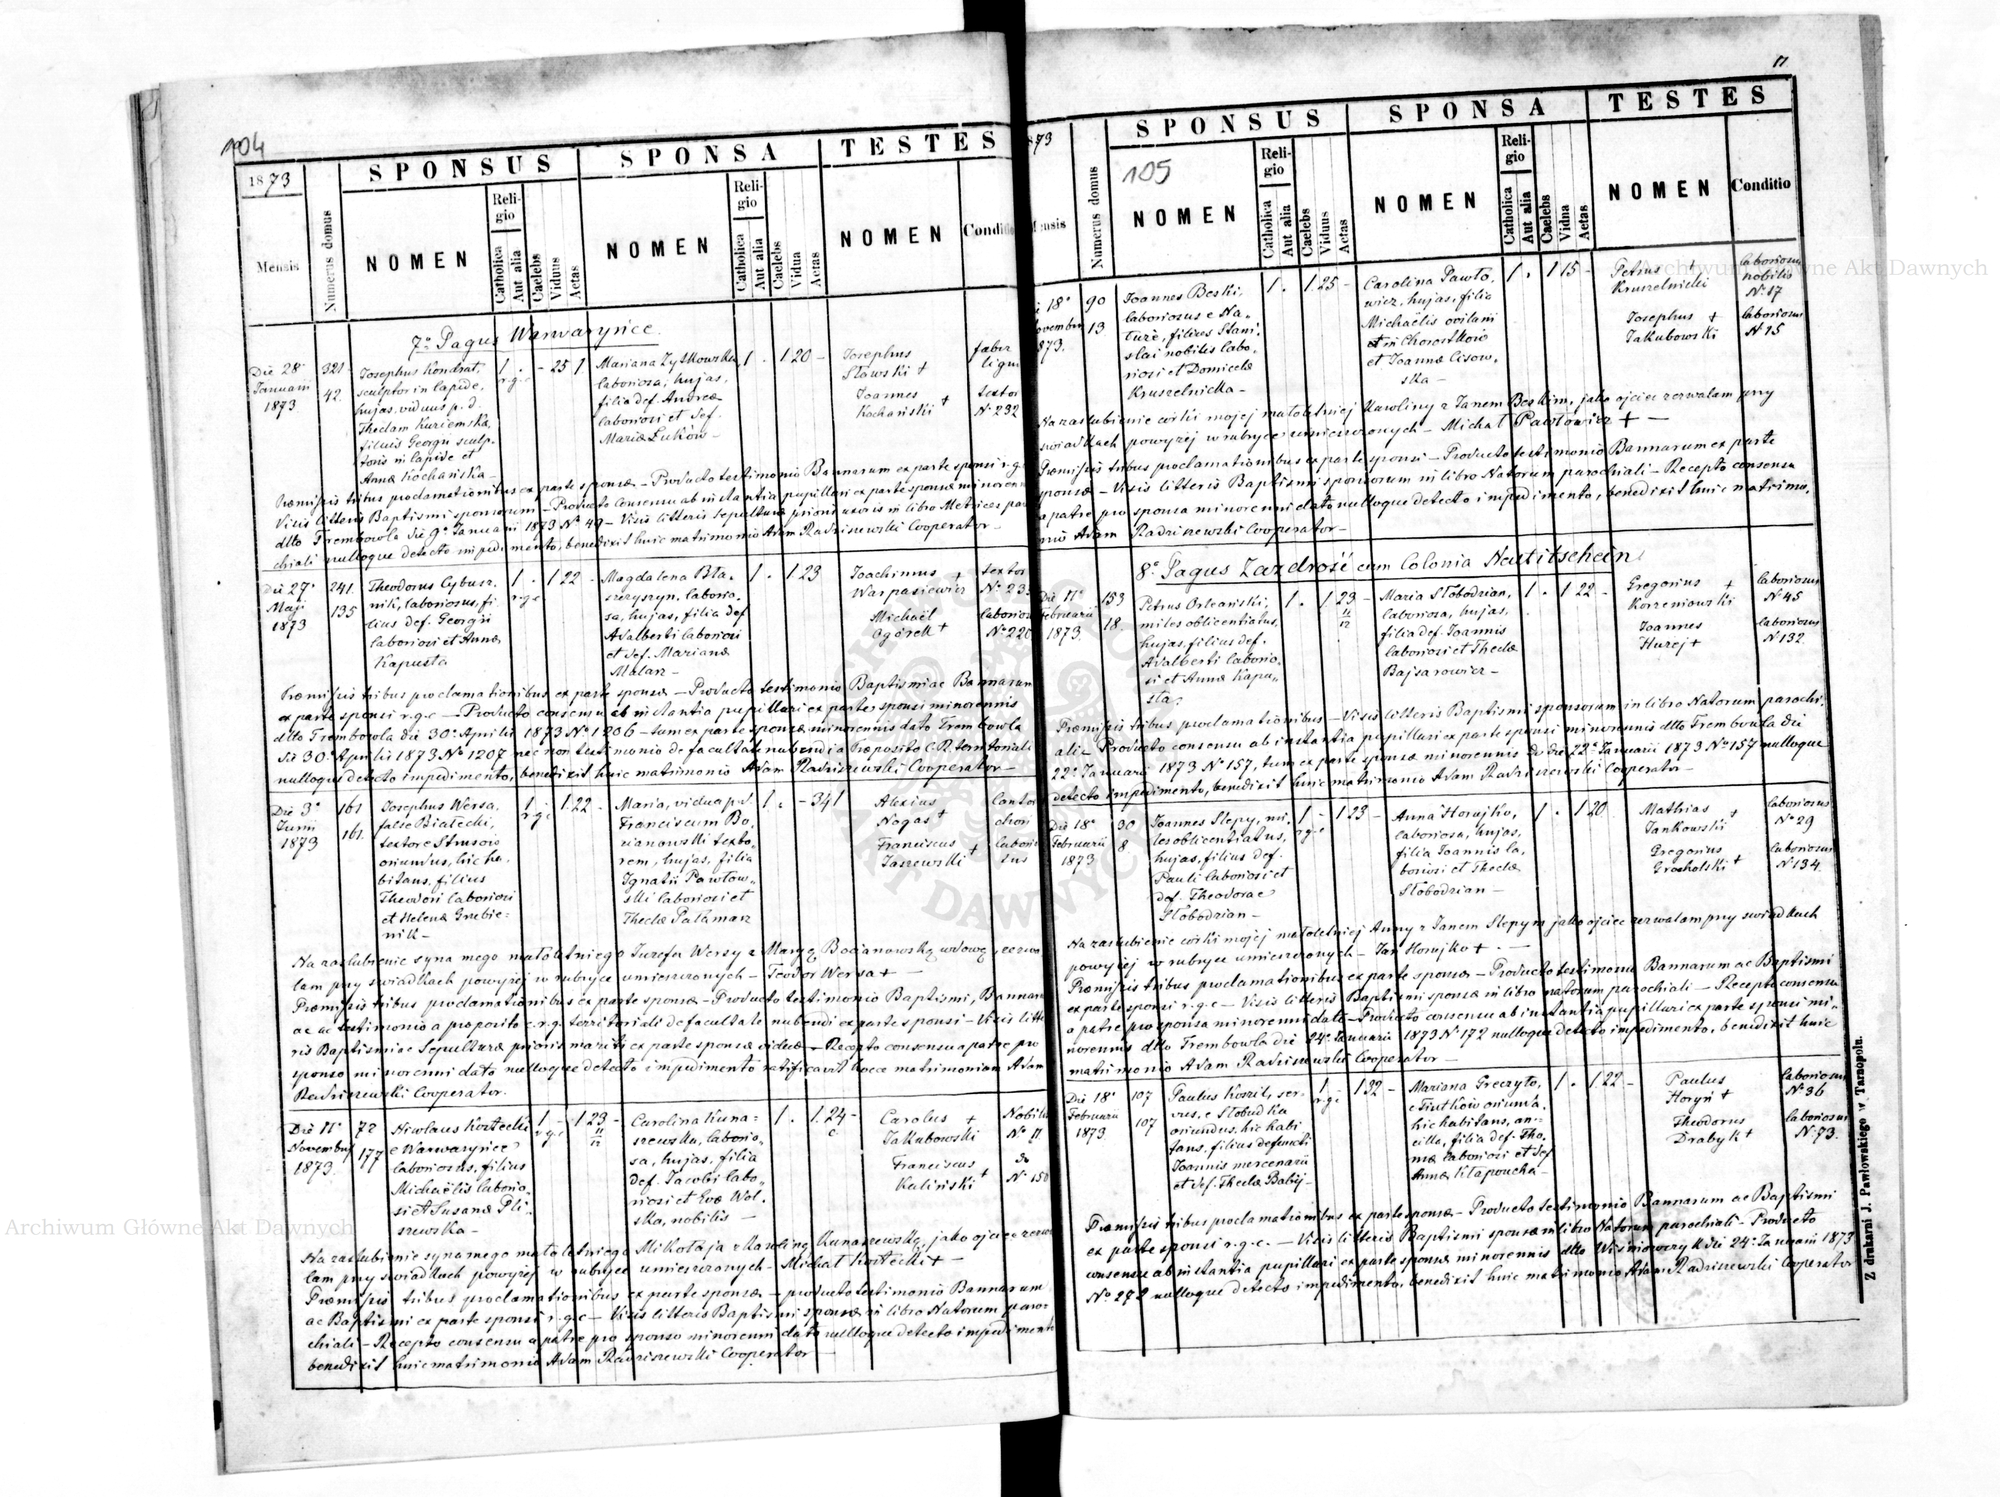 104
1873
SPONSUS
SPONSA
TESTES
Mensis
Numerus domus
NOMEN
Religio
Catholica
Aut alia
Caelebs
Viduus
Aetas
NOMEN
Religio
Catholica
Aut alia
Caelebs
Vidua
Aetas
NOMEN
Conditio
7º Pagus Warwaryńce
Die 28ª
Januarii
1873
321
42
Josephus Kondrat,
sculptor in lapide,
hujas, viduus p. d.
Theclam Kuriemska,
filius Georgii sculp-
toris in lapide et
Anna Kochańska
1 . - 25 1
r.g.c
Mariana Zyskowska,
laboriosa, hujas,
filia def. Andreæ
laboriosi et def.
Mariæ Łuków -
1 . 1 20 -
Josephus
Sławski +
Joannes +
Kochański
faber
lign
textor
Nº 232
Præmissis tribus proclamationibus ex parte sponsæ - Producto testimonio Bannorum ex parte sponsi r.g.c
Visis litteris Baptismi sponsorum - Producto consensu ab instantia pupillari ex parte sponsæ minoren
dtto Trembowla die 9ª Januarii 1873 Nº 49 - Visis litteris sepulturæ prioris uxoris in libro Metrices paro
chiali nulloque detecto impedimento, benedixit huic matrimonio Adam Radziszewski Cooperator -
Die 27ª
Maji
1873
241
135
Theodorus Cybusz,
nik, laboriosus, fi
lius def. Georgii
laboriosi et Annæ
Kapusta
1 . 1 22 -
r.g.c
Magdalena Bła-
szczyszyn, laborio-
sa, hujas, filia def
Adalberti laboriosi
et def. Marianæ
Malarz -
1 . 1 23
Joachimus +
Warpasiewicz
Michaël
Ogórek +
textor
Nº 235
laborios
Nº 220
Præmissis tribus proclamationibus ex parte sponsæ - Producto testimonio Baptismi ac Bannorum
ex parte sponsi r.g.c - Producto consensu ab instantia pupillari ex parte sponsi minorennis
dtto Trembowla die 30ª Aprilis 1873 Nº 1206 - tum ex parte sponsæ minorennis dato Trembowla
die 30ª Aprilis 1873 Nº 1207 nec non testimonio de facultate nubendi a Præposito C.R. territoriali
nulloque detecto impedimento, benedixit huic matrimonio Adam Radziszewski Cooperator -
Die 3ª
Junii
1873
161
161
Josephus Wersa,
false Białecki,
textor e Strusow
oriundus, hic ha-
bitans, filius
Theodori laboriosi
et Helenæ Grzebie=
nik -
1 - 1 22 -
r.g.c
Maria, vidua p. d.
Franciscum Bo-
cianowski texto-
rem, hujas, filia
Ignatii Pawłow-
ski laboriosi et
Theclæ Palamarz
1 . - 34 1
Alexius
Nogas +
Franciscus +
Jaszewski
Cantor
chori
laborio
sus
Na zaslubienie syna mego małoletniego Jozefa Wersy z Maryą Bocianowską wdową, zezwa
lam przy swiadkach powyżej w rubryce umieszczonych - Teodor Wersa +
Præmissis tribus proclamationibus ex parte sponsæ - Producto testimonio Baptismi, Bannor
ac ac testimonio a præposito c.r.g. territoriali de facultate nubendi ex parte sponsi - Visis litte
ris Baptismi ac Sepulturæ prioris mariti ex parte sponsæ viduæ - Recepto consensu a patre pro
sponso minorenni dato nulloque detecto impedimento ratificavit hocce matrimonium Adam
Radziszewski Cooperator.
Die 11ª
Novembris
1873
72
177
Nicolaus Kostecki
e Warwaryńce
laboriosus, filius
Michaëlis laborio-
si et Susanæ Pli-
szewska -
1 - 1 23 -
r.g.c 11/12
Carolina Kuna=
szewska, laborio-
sa, hujas, filia
def. Jacobi labo-
riosi et Evæ Wol-
ska, nobilis -
1 . 1 24 -
Carolus +
Jakubowski
Franciscus
Kaliński +
Nobilis
Nº 11
do
Nº 150
Na zaslubienie syna mego małoletniego Mikołaja z Karoliną Kunaszewską, jako ojciec zezwa
lam przy swiadkach powyżej w rubryce umieszczonych - Michał Kostecki +
Præmissis tribus proclamationibus ex parte sponsæ - producto testimonio Bannorum
ac Baptismi ex parte sponsi r.g.c - Visis litteris Baptismi sponsæ in libro Natorum paro-
chiali - Recepto consensu a patre pro sponso minorenni dato nulloque detecto impedimento
benedixit huic matrimonio Adam Radziszewski Cooperator -
11
105
SPONSUS
SPONSA
TESTES
Numerus domus
NOMEN
Religio
Catholica
Aut alia
Caelebs
Viduus
Aetas
NOMEN
Religio
Catholica
Aut alia
Caelebs
Vidua
Aetas
NOMEN
Conditio
18ª
Novembr
1873.
90
13
Joannes Beski,
laboriosus e Na-
turé, filius Stani-
slai nobilis labo-
riosi et Domicelæ
Kruszelnicka -
1 . 1 25 -
Carolina Pawło-
wicz, hujas, filia
Michaëlis ovilani
in Chorostków
et Joannæ Lisow-
ska -
1 . 1 15 -
Petrus +
Kruszelnicki
Josephus +
Jakubowski
laboriosus
nobilis
Nº 17
laboriosus
Nº 15
Na zaslubienie córki mojej małoletniej Karoliny z Janem Beskim, jako ojciec zezwalam przy
swiadkach powyżej w rubryce umieszczonych - Michał Pawłowicz +
Præmissis tribus proclamationibus ex parte sponsi - Producto testimonio Bannorum ex parte
sponsæ - Visis litteris Baptismi sponsorum in libro Natorum parochiali - Recepto consensu
a patre pro sponsa minorenni dato nulloque detecto impedimento, benedixit huic matrimo-
nio Adam Radziszewski Cooperator -
8º Pagus Zazdrość cum Colonia Neutitschein
Die 11ª
Februarii
1873
153
18
Petrus Orleański,
miles oblicentiatus,
hujas, filius def.
Adalberti laborio-
si et Annæ Kapu-
sta.
1 . 1 23 -
11/12
Maria Słobodzian,
laboriosa, hujas,
filia def. Joannis
laboriosi et Theclæ
Bajsarowicz -
1 . 1 22 -
Gregorius +
Korzeniowski
Joannes
Hurej +
laboriosus
Nº 45
laboriosus
Nº 132
Præmissis tribus proclamationibus - Visis litteris Baptismi sponsorum in libro Natorum parochi-
ali - Producto consensu ab instantia pupillari ex parte sponsi minorennis dtto Trembowla die
22ª Januarii 1873 Nº 157, tum ex parte sponsæ minorennis de die 22ª Januarii 1873 Nº 157 nulloque
detecto impedimento, benedixit huic matrimonio Adam Radziszewski Cooperator -
Die 18ª
Februarii
1873
30
8
Joannes Slepy, mi-
les oblicentiatus,
hujas, filius def.
Pauli laboriosi et
def. Theodoræ
Słobodzian -
1 - 1 23 -
r.g.c
Anna Horajko,
laboriosa, hujas,
filia Joannis la-
boriosi et Theclæ
Słobodzian -
1 . 1 20
Mathias +
Jankowski
Gregorius
Grosholski +
laboriosus
Nº 29
laboriosus
Nº 134
Na zaslubienie córki mojej małoletniej Anny z Janem Slepym jako ojciec zezwalam przy swiadkach
powyżej w rubryce umieszczonych - Jan Horajko +
Præmissis tribus proclamationibus ex parte sponsæ - Producto testimonio Bannorum ac Baptismi
ex parte sponsi r.g.c - Visis litteris Baptismi sponsæ in libro natorum parochiali - Recepto consensu
a patre pro sponsa minorenni dato - Producto consensu ab instantia pupillari ex parte sponsi mi-
norennis dtto Trembowla die 24ª Januarii 1873 Nº 172 nulloque detecto impedimento, benedixit huic
matrimonio Adam Radziszewski Cooperator -
Die 18ª
Februarii
1873
107
107
Paulus Koszil, ser-
vus, e Słobudka
oriundus, hic habi
tans, filius defuncti
Joannis mercenarii
et def. Theclæ Babij -
1 - 1 32 -
r.g.c
Mariana Greczyło,
e Tiutków oriunda,
hic habitans, an-
cilla, filia def. Tho-
mæ laboriosi et def
Annæ Kłapoucha -
1 . 1 22 -
Paulus
Horyń +
Theodorus
Drabyk +
laboriosus
Nº 36
laboriosus
Nº 73.
Præmissis tribus proclamationibus ex parte sponsæ - Producto testimonio Bannorum ac Baptismi
ex parte sponsi r.g.c. - Visis litteris Baptismi sponsæ in libro Natorum parochiali - Producto
consensu ab instantia pupillari ex parte sponsæ minorennis dtto Wiśniowczyk die 24ª Januarii 1873
Nº 272 nulloque detecto impedimento, benedixit huic matrimonio Adam Radziszewski Cooperator
Z drukarni J. Pawłowskiego w Tarnopolu.
Archiwum Główne Akt Dawnych
Archiwum Główne Akt Dawnych